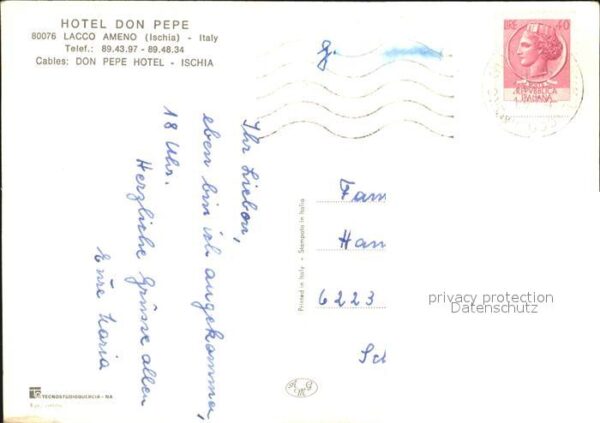 HOTEL DON PEPE
80076 LACCO AMENO (Ischia) - Italy
Telef.: 89.43.97 - 89.48.34
Cables: DON PEPE HOTEL - ISCHIA
g.
LIRE 40
REPVBBLICA
ITALIANA
Ihr Lieben,
eben bin ich angekommen,
18 Uhr.
Herzliche Grüsse allen
Eure Maria
Printed in Italy - Stampato in Italia
Fam
Han
6223
Sch
privacy protection
Datenschutz
TECNOSTUDIOQUERCIA - NA